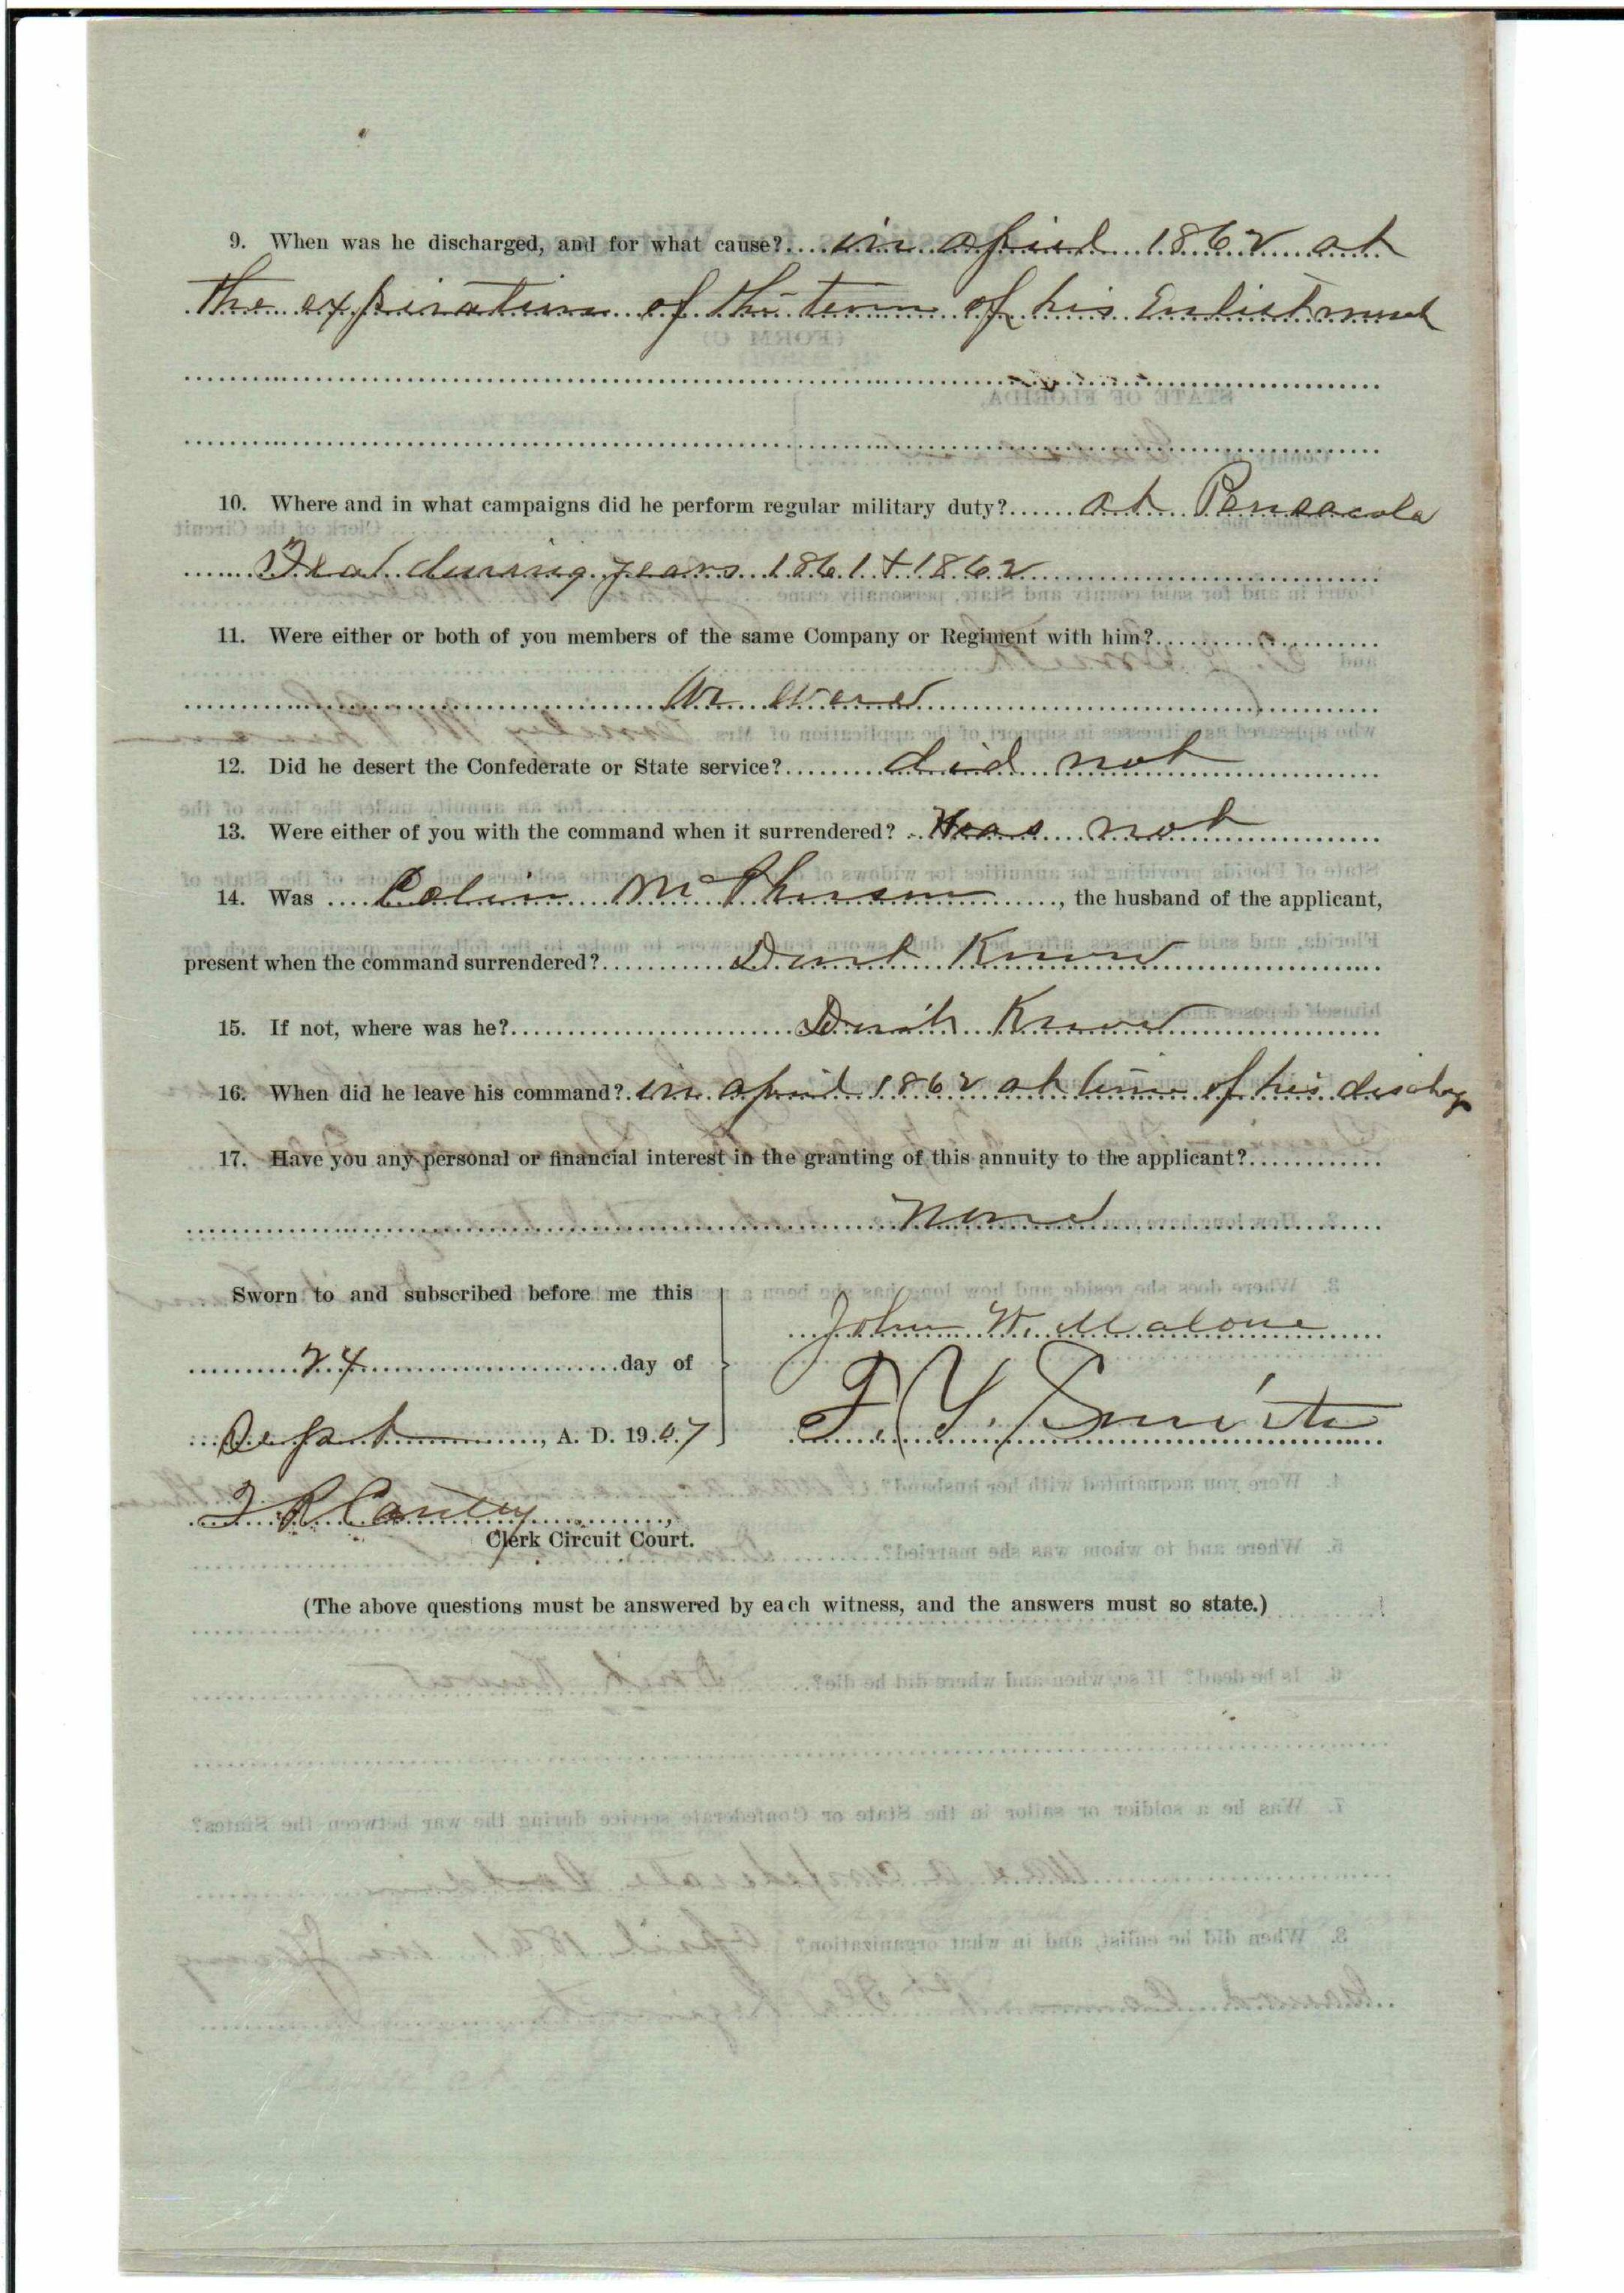 9. When was he discharged, and for what cause? in april 1862 at
the expiration of the term of his Enlistment
10. Where and in what campaigns did he perform regular military duty? at Pensacola
Fla during years 1861 & 1862
11. Were either or both of you members of the same Company or Regiment with him?
We were
12. Did he desert the Confederate or State service? did not
13. Were either of you with the command when it surrendered? Was not
14. Was Colin McPherson, the husband of the applicant,
present when the command surrendered? Dont Know
15. If not, where was he? Dont Know
16. When did he leave his command? in april 1862 at time of his dischg
17. Have you any personal or financial interest in the granting of this annuity to the applicant?
None
Sworn to and subscribed before me this
John W. Malone
24 day of
F. Y. Smith
Sept, A. D. 1907
Clerk Circuit Court.
(The above questions must be answered by each witness, and the answers must so state.)